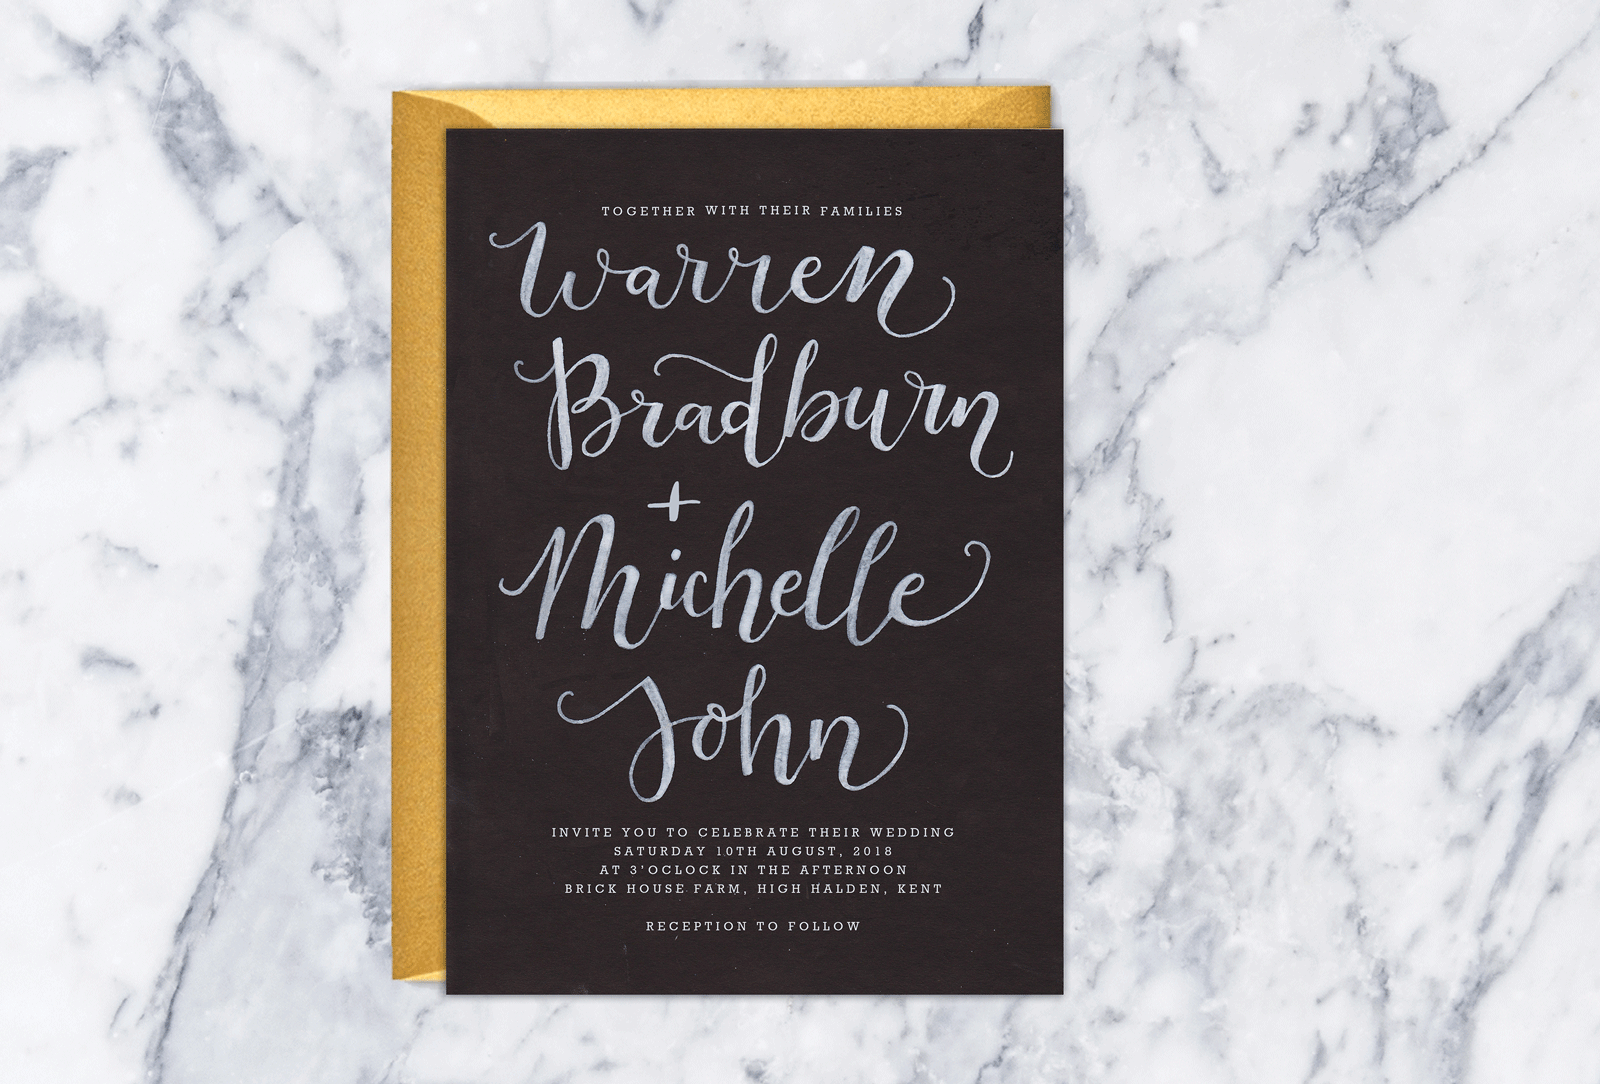 TOGETHER WITH THEIR FAMILIES
Warren
Bradburn
+
Michelle
John
INVITE YOU TO CELEBRATE THEIR WEDDING
SATURDAY 10TH AUGUST, 2018
AT 3'OCLOCK IN THE AFTERNOON
BRICK HOUSE FARM, HIGH HALDEN, KENT
RECEPTION TO FOLLOW